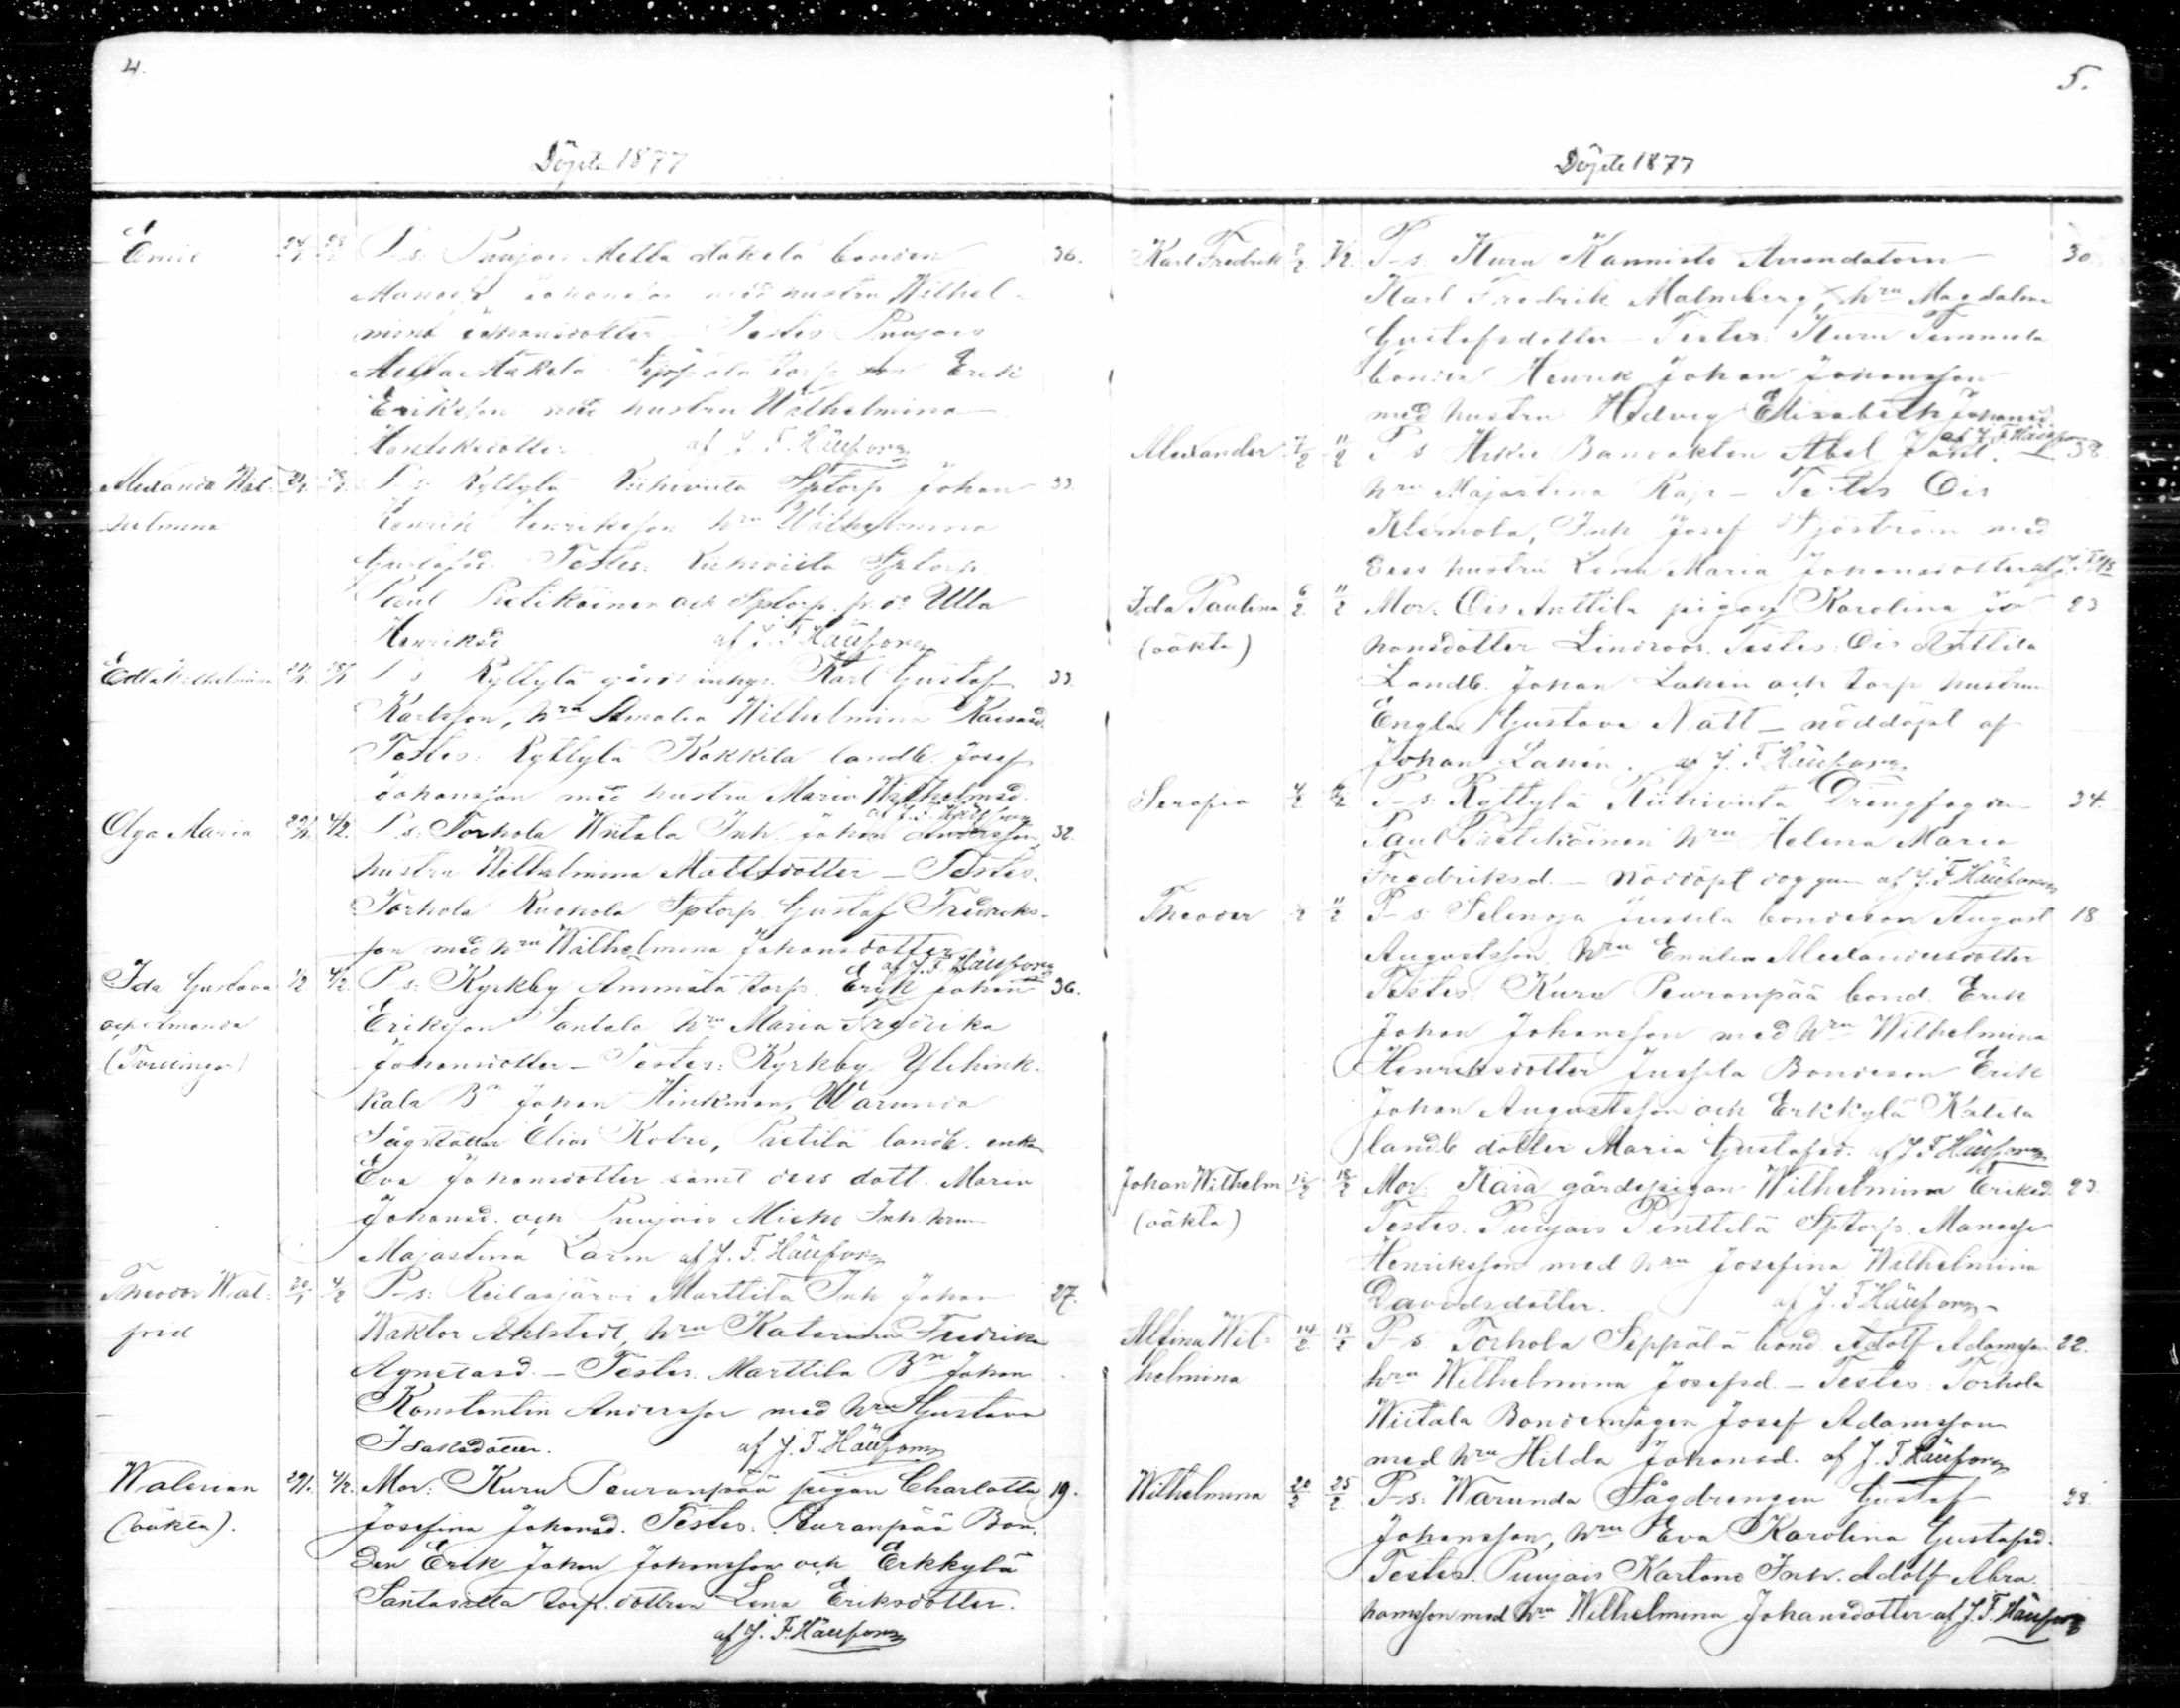 4.
Döpte 1877
Emil P-s: Puujois Mella Mäkelä bonden 36.
Johansson med hustru Wilhel-
mina Johansdotter Testes Puujois
Mella Mäkelä Seppälä Erik
Eriksson med hustru Wilhelmina
Henriksdotter. af J. F. Häusforn
Alexandra Wil- P-s: Ryttylä Riihiviita Sptorp. Johan 33.
helmina Henrik Henriksson hru Wilhelmina
Gustafsd. Testes: Riihiviita Sptorp.
Paul Pietikäinen och Sptorp. Ulla
Henriksd af J. F. Häusforn
Edla Wilhelmina P-s Ryttylä gårds Karl Gustaf 33.
Karlsson, hru Amalia Wilhelmina
Testes: Ryttylä Kokkila landb. Josef
Johansson med hustru Maria Wilhelmsd.
af J. F. Häusforn
Olga Maria 29/1 4/2. P-s: Torhola Wiitala Inh. Johan Andersson, 32.
hustru Wilhelmina Mattsdotter – Testes.
Torhola Ruohola Sptorp. Gustaf Fredriks-
son med hru Wilhelmina Johansdotter
af J. F. Häusforn
Ida Gustava 1/2 4/2. P-s: Kyrkby Ammälä torp. Erik Johan 36.
och Amanda Eriksson Santala hru Maria Fredrika
(Tvillingar) Johansdotter – Testes: Kyrkby Ylihink-
kala Bn Johan Hinkman, Warunda
Elias Kotro, Pietilä landb. enka
Eva Johansdotter samt dess dott. Maria
Johansd. och Puujois Inh. hrun
Majastina af J. F. Häusforn
Theodor Wal- 4/2 P-s: Reilasjärvi Marttila Inh Johan 27.
frid Waktor Ahlstedt, hru Katarina Fredrika
Agnetasd. – Testes. Marttila Bn Johan
Konstantin Andersson med hru Gustava
Isaksdotter. af J. F. Häusforn
Walerian 29/1. 4/2. Mor: Kuru Peuranpää pigan Charlotta 19.
(oäkta). Josefina Johansd. Testes. Peuranpää Bon-
den Erik Johan Johansson och Erkkylä
Santasilta torp. dottren Lena Eriksdotter.
af J. F. Häusforn
5.
Döpte 1877
Karl Fredrik P-s: Kuru Kannisto Arrendatorn 30
Karl Fredrik Malmberg, hru Magdalena
Gustafsdotter – Testes: Kuru Temmola
bonden Henrik Johan Johansson
med hustru Hedvig Elisabeth Johansd.
af J. F. Häusforn
Alexander 11/2 P-s Banvakten Abel 38
hru Majastina – Testes Ois
Klemola, Inh Josef Sjöström med
dess hustru Lena Maria Johansdotter af J. F. Hs
Ida Paulina 6/2 11/2 Mor. Ois Anttila pigan Karolina Jo- 23
(oäkta) hansdotter Lindroos. Testes: Ois Anttila
Landb. Johan Lahin och torp hustrun
Engla Gustava Nätt – nöddöpt af
Johan Lahin. af J. F. Häusforn
Serafia 4/2 P-s: Ryttylä Riihiviita Drengsagn 34.
Paul Pietikäinen hru Helena Maria
Fredriksd. – Nöddöpt af J. F. Häusforn
Theodor 11/2 P-s: Jussila bondeson August 18
Augustsson, hru Emilia Alexandersdotter
Testes. Kuru Peuranpää bond. Erik
Johan Johansson med hru Wilhelmina
Henriksdotter Jussila Bondeson Erik
Johan Augustsson och Erkkylä Kalela
landb dotter Maria Gustafsd. af J. F. Häusforn
Johan Wilhelm 18/2 Mor: Kara gårdspigan Wilhelmina Eriksd. 23.
(oäkta) Testes. Puujois Penttilä Sptorp. Manasse
Henriksson med hru Josefina Wilhelmina
Davidsdotter. af J. F. Häusforn
Alfina Wil- 14/2 18/2 P-s Torhola Seppälä bond. Adolf Adamsson 22.
helmina hru Wilhelmina Josefsd. – Testes: Torhola
Wiitala Bondemågen Josef Adamsson
med hru Hilda Johansd. af J. F. Häusforn
Wilhelmina 20/2 25/2. P-s: Warunda Sågdrengen Gustaf 28.
Johansson, hru Eva Karolina Gustafsd.
Testes. Puujois Kartano Inh. Adolf Abra-
hamsson med hru Wilhelmina Johansdotter af J. F. Häusforn